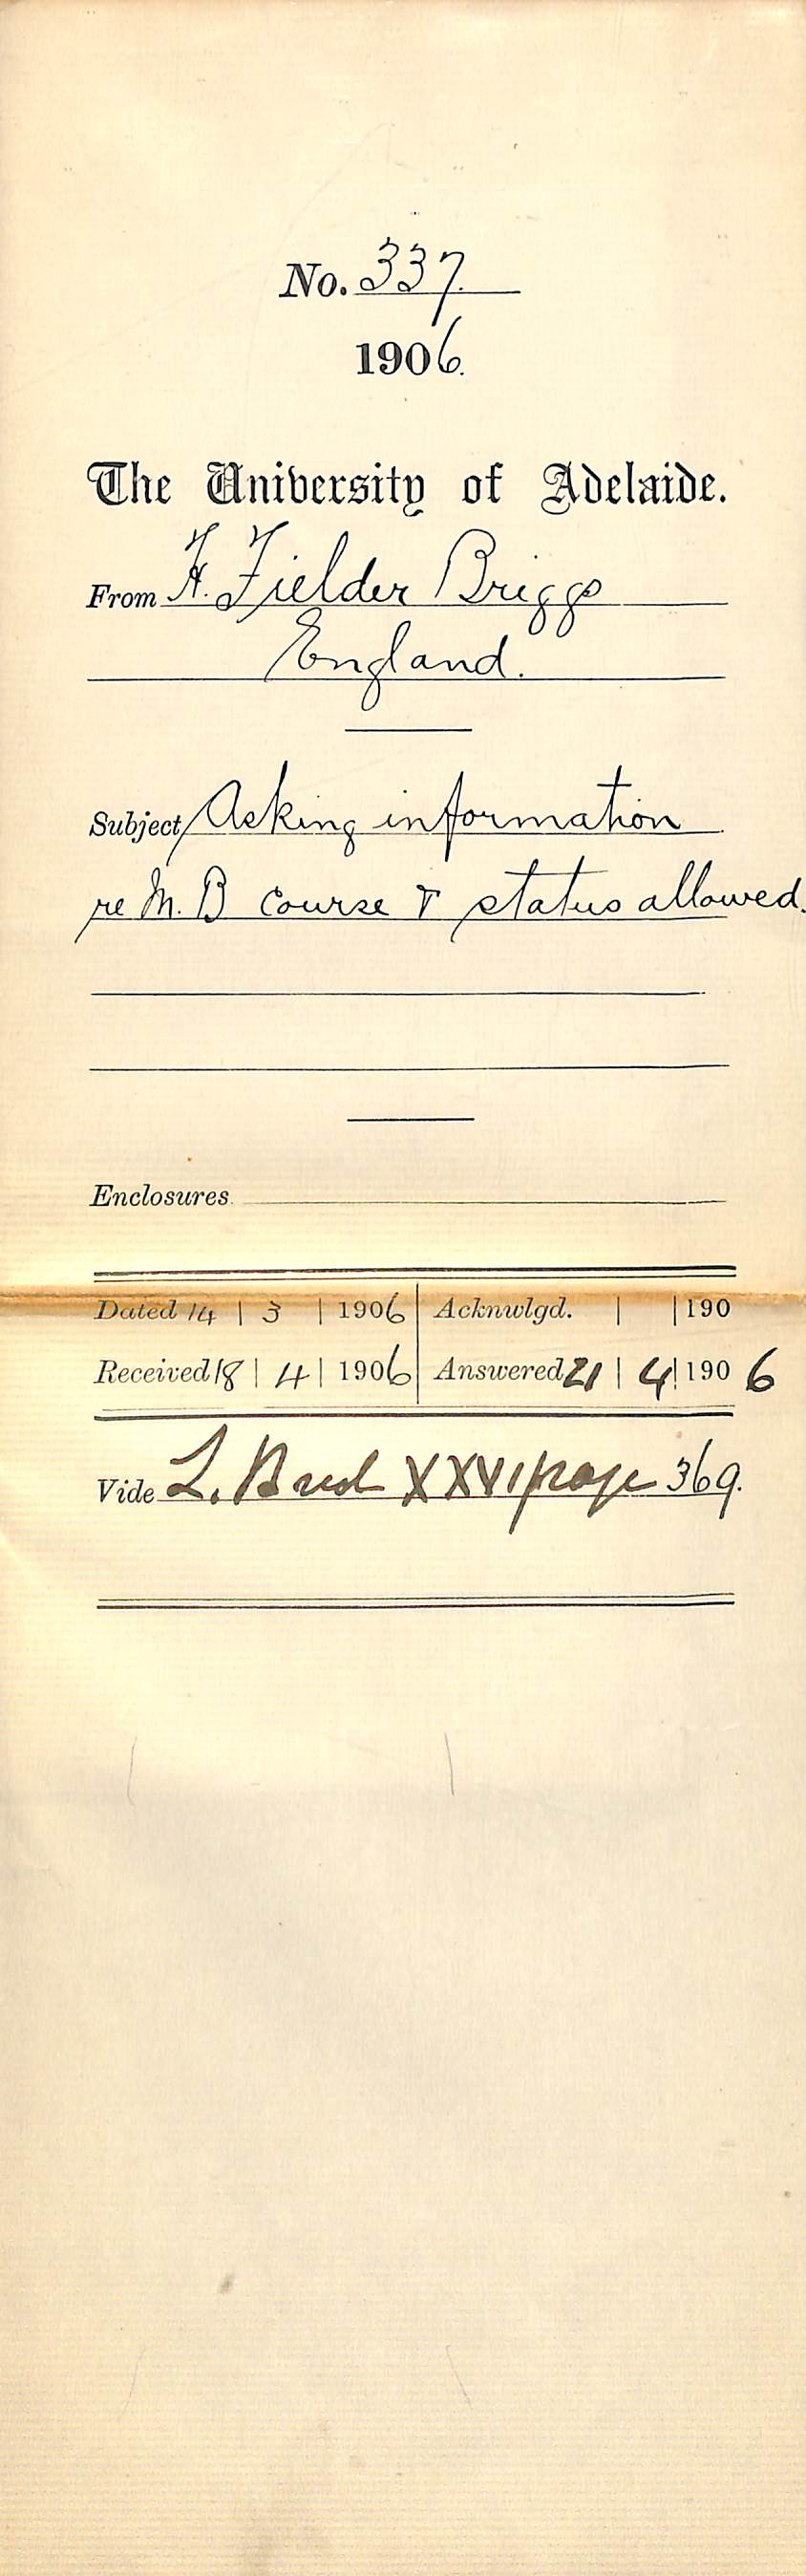 No. 337.
1906.
The University of Adelaide.
From H. Fielder Briggs
England.
Subject Asking information
re M. B course & status allowed.
Enclosures
Dated 14 | 3 | 1906 Acknwlgd. | | 190
Received 18 | 4 | 1906 Answered 21 | 4 | 190 6
Vide L. XXVI page 369.